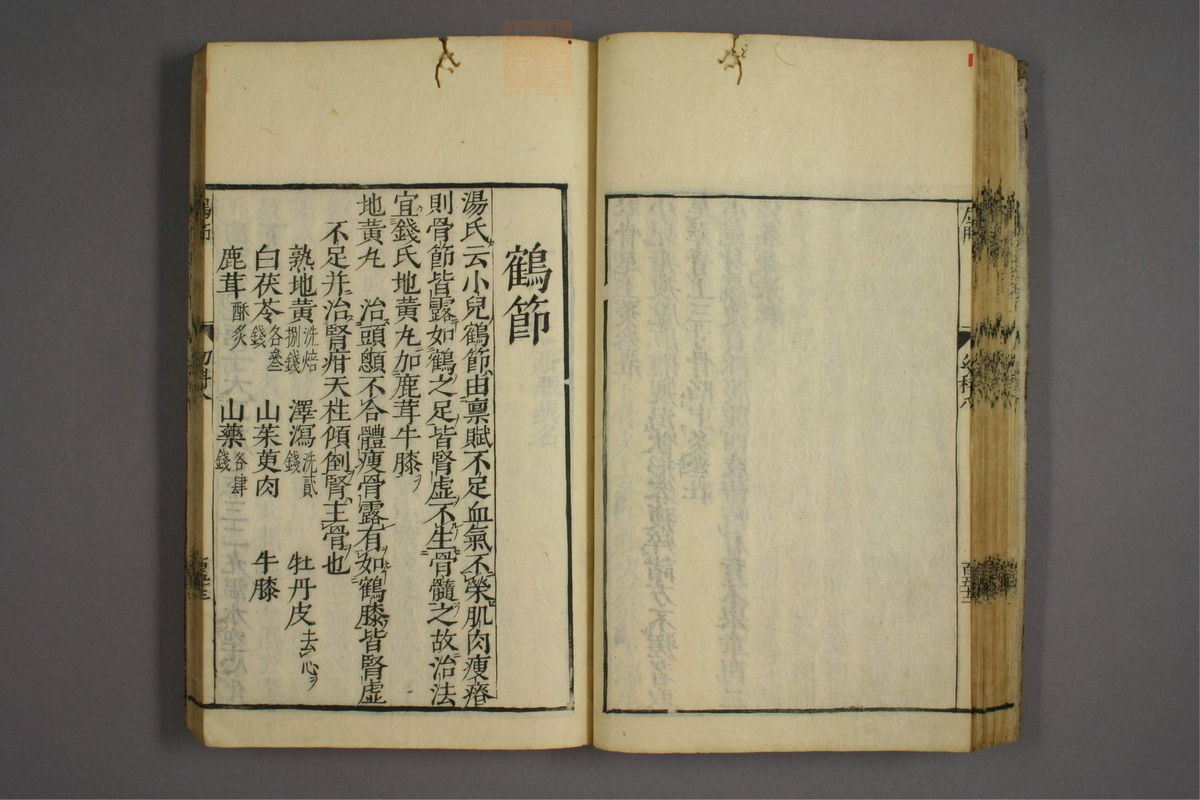 鶴節
湯氏云小兒鶴節由禀賦不足血氣不榮肌肉瘦瘠
則骨節皆露如鶴之足皆腎虛不生骨髓之故治法
宜錢氏地黃丸加鹿茸牛膝
地黃丸 治頭顖不合體瘦骨露有如鶴膝皆腎虛
不足并治腎疳天柱傾倒腎主骨也
熟地黃洗焙捌錢 澤瀉洗貳錢 牡丹皮去心
白茯苓各叁錢 山茱萸肉 牛膝
鹿茸酥炙 山藥各肆錢